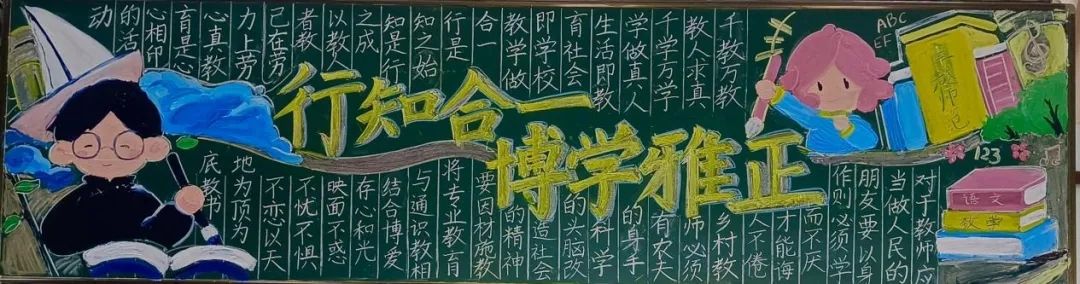 行知合一
博学雅正
千教万教
教人求真
千学万学
学做真人
生活即教
育社会
即学校
教学做
合一
行是
知之始
知是行
之成
以教人
者教
己在劳
力上劳
心真教
育是心
心相印
的活
动
ABC
EF
123
语文
数学
对于教师应
当做人民的
朋友要以身
作则必须学
而不厌
才能诲
人不倦
乡村教
师必须
有农夫
的身手
科学
的头脑改
造社会
的精神
要因材施教
将专业教育
与通识教相
结合博爱
存心和光
映面不惑
不忧不惧
不亦心以天
地为顶为
底教书